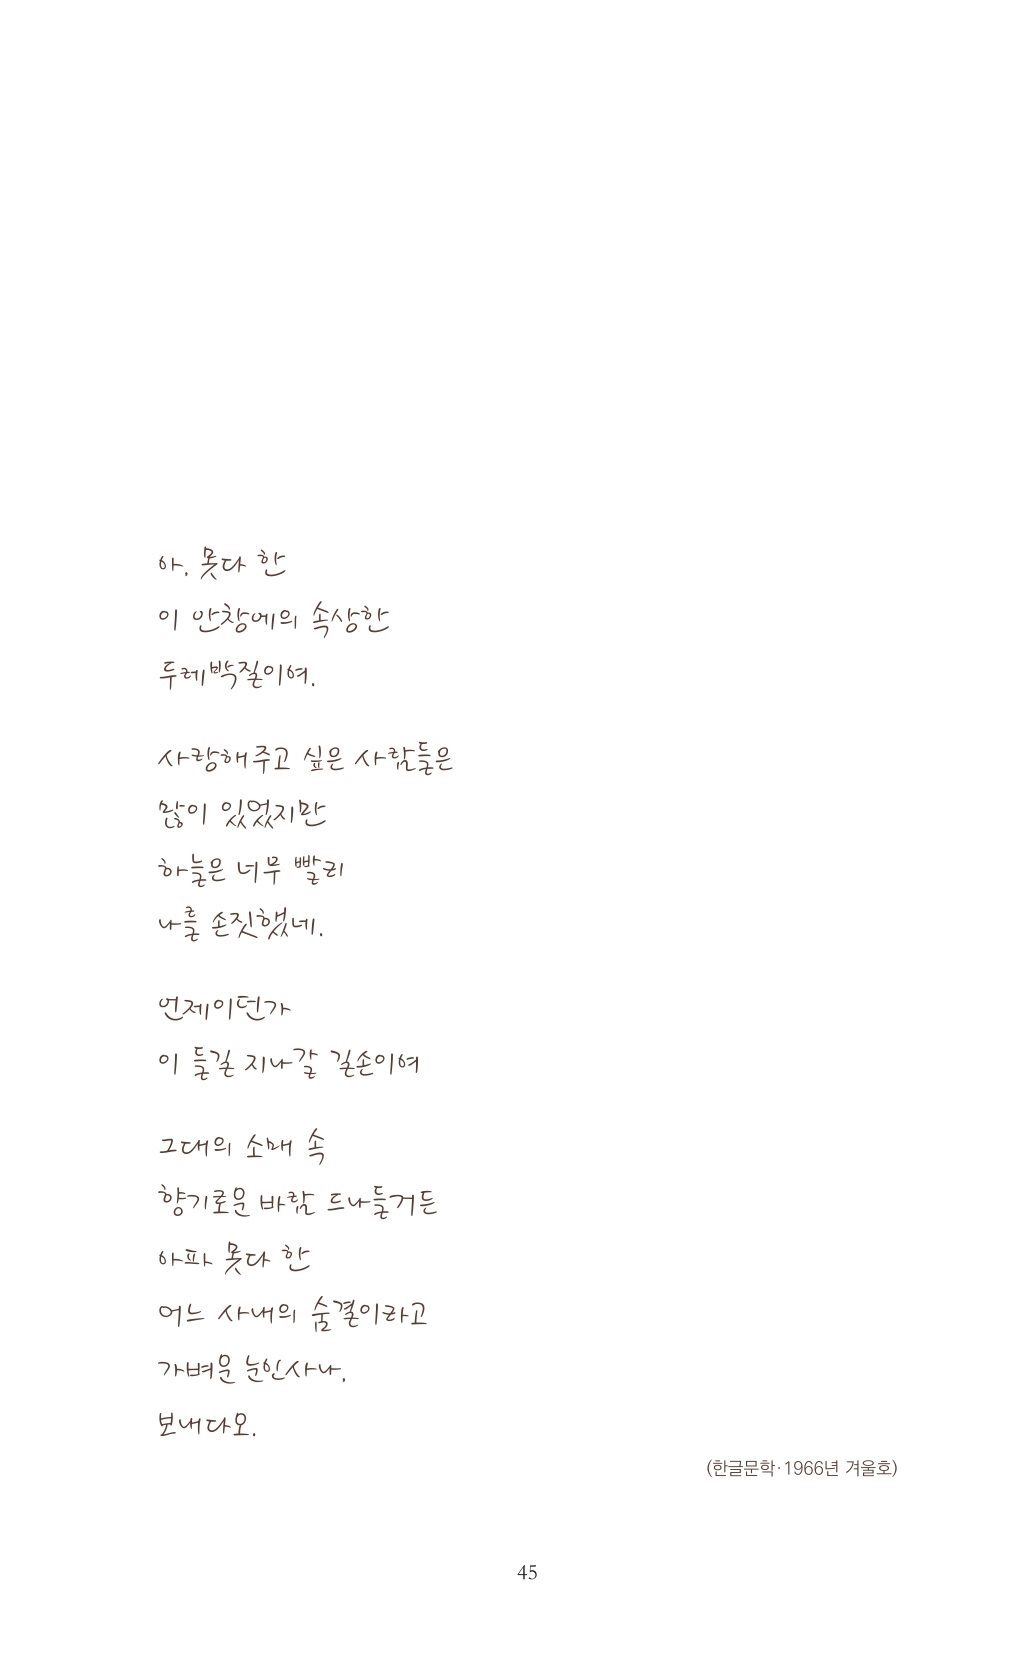 아, 못다 한
이 안창에의 속상한
두레박질이여.
사랑해주고 싶은 사람들은
많이 있었지만
하늘은 너무 빨리
나를 손짓했네.
언제이던가
이 들길 지나갈 길손이여
그대의 소매 속
향기로운 바람 드나들거든
아파 못다 한
어느 사내의 숨결이라고
가벼운 눈인사나,
보내다오.
(한글문학·1966년 겨울호)
45